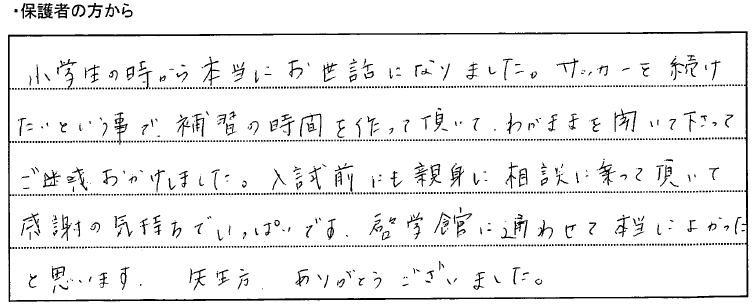 ・保護者の方から
小学生の時から本当にお世話になりました。サッカーを続け
たいという事で、補習の時間を作って頂いて、わがままを聞いて下さって
ご迷惑おかけしました。入試前にも親身に相談に乗って頂いて
感謝の気持ちでいっぱいです。啓学館に通わせて本当によかった
と思います。 先生方、ありがとうございました。